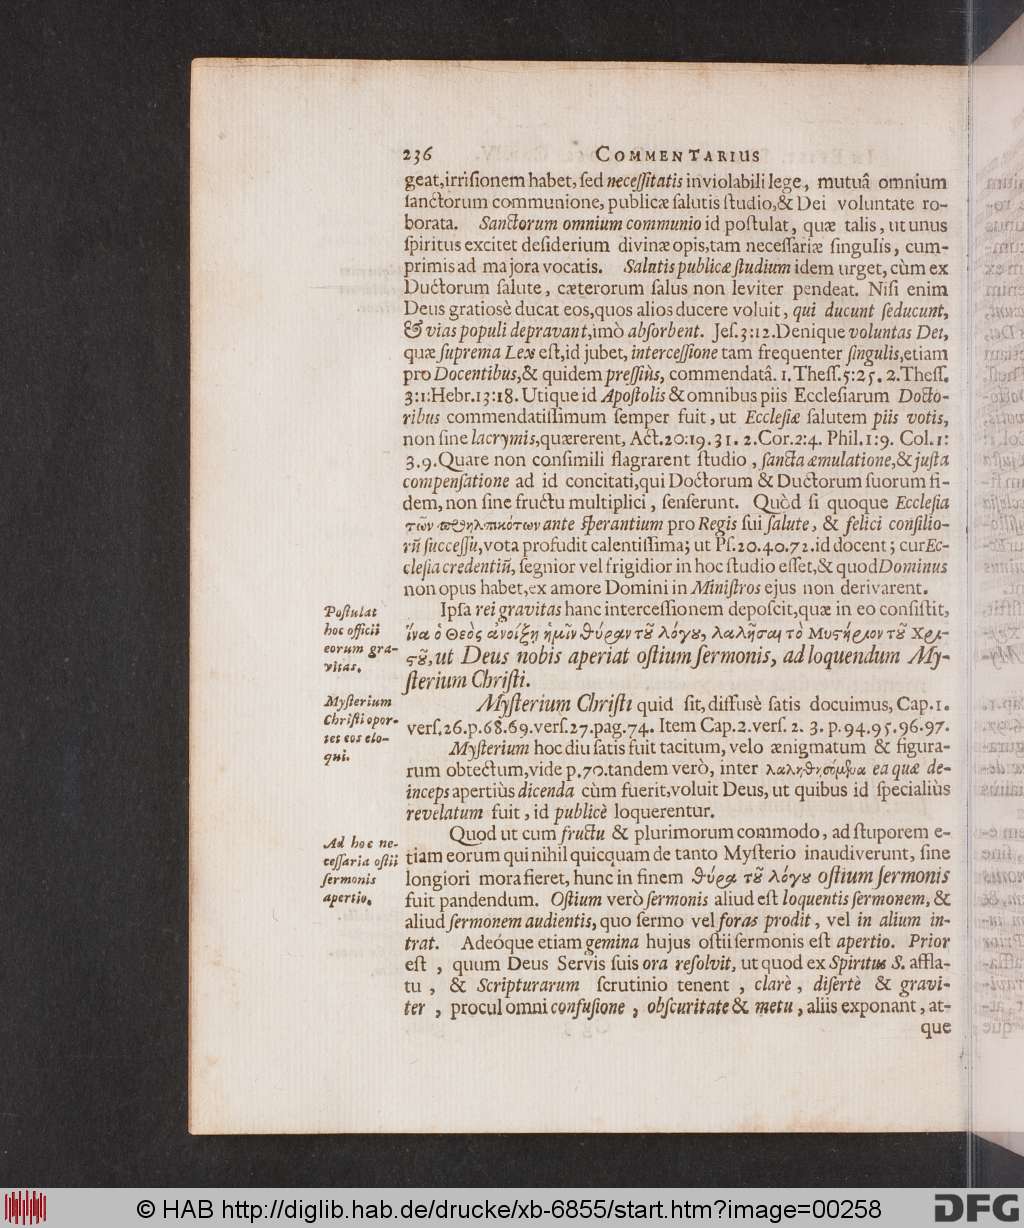 236 COMMENTARIUS
geat,irriſionem habet, ſed neceſſitatis inviolabili lege, mutuâ omnium
ſanctorum communione, publicæ ſalutis ſtudio,& Dei voluntate ro-
borata. Sanctorum omnium communio id poſtulat, quæ talis, ut unus
ſpiritus excitet deſiderium divinæ opis,tam neceſſariæ ſingulis, cum-
primis ad majora vocatis. Salutis publicæ ſtudium idem urget, cùm ex
Ductorum ſalute, cæterorum ſalus non leviter pendeat. Niſi enim
Deus gratiosè ducat eos,quos alios ducere voluit, qui ducunt ſeducunt,
& vias populi depravant,imò abſorbent. Jeſ.3:12.Denique voluntas Dei,
quæ ſuprema Lex eſt,id jubet, interceſſione tam frequenter ſingulis,etiam
pro Docentibus,& quidem preſſiùs, commendatâ. 1. Theſſ.5:25. 2.Theſſ.
3:1:Hebr.13:18. Utique id Apoſtolis & omnibus piis Eccleſiarum Docto-
ribus commendatiſſimum ſemper fuit, ut Eccleſiæ ſalutem piis votis,
non ſine lacrymis,quærerent, Act.20:19.31. 2.Cor.2:4. Phil.1:9. Col.1:
3.9.Quare non conſimili flagrarent ſtudio, ſancta æmulatione,& juſta
compenſatione ad id concitati,qui Doctorum & Ductorum ſuorum fi-
dem, non ſine fructu multiplici, ſenſerunt. Quòd ſi quoque Eccleſia
τῶν προηλπικότων ante ſperantium pro Regis ſui ſalute, & felici conſilio-
rū ſucceſſu,vota profudit calentiſſima; ut Pſ.20.40.72.id docent; cur Ec-
cleſia credentiū, ſegnior vel frigidior in hoc ſtudio eſſet,& quod Dominus
non opus habet,ex amore Domini in Miniſtros ejus non derivarent.
Poſtulat
hoc officii
eorum gra-
vitas.
Ipſa rei gravitas hanc interceſſionem depoſcit,quæ in eo conſiſtit,
ἵνα ὁ Θεὸς ἀνοίξῃ ἡμῖν θύραν τȣ͂ λόγȣ, λαλῆσαι τὸ Μυςήριον τȣ͂ Χρι-
ςȣ͂, ut Deus nobis aperiat oſtium ſermonis, ad loquendum My-
ſterium Chriſti.
Myſterium
Chriſti opor-
tet eos elo-
qui.
Myſterium Chriſti quid ſit, diffusè ſatis docuimus, Cap.1.
verſ.26.p.68.69.verſ.27.pag.74. Item Cap.2.verſ. 2. 3. p.94.95.96.97.
Myſterium hoc diu ſatis fuit tacitum, velo ænigmatum & figura-
rum obtectum,vide p.70.tandem verò, inter λαληθησόμϟνα ea quæ de-
inceps apertiùs dicenda cùm fuerit,voluit Deus, ut quibus id ſpecialiùs
revelatum fuit, id publicè loquerentur.
Ad hoc ne-
ceſſaria oſtii
ſermonis
apertio.
Quod ut cum fructu & plurimorum commodo, ad ſtuporem e-
tiam eorum qui nihil quicquam de tanto Myſterio inaudiverunt, ſine
longiori mora fieret, hunc in finem θύρα τȣ͂ λόγȣ oſtium ſermonis
fuit pandendum. Oſtium verò ſermonis aliud eſt loquentis ſermonem, &
aliud ſermonem audientis, quo ſermo vel foras prodit, vel in alium in-
trat. Adeóque etiam gemina hujus oſtii ſermonis eſt apertio. Prior
eſt, quum Deus Servis ſuis ora reſolvit, ut quod ex Spiritus S. affla-
tu, & Scripturarum ſcrutinio tenent, clarè, diſertè & gravi-
ter, procul omni confuſione, obſcuritate & metu, aliis exponant, at-
que
© HAB http://diglib.hab.de/drucke/xb-6855/start.htm?image=00258
DFG